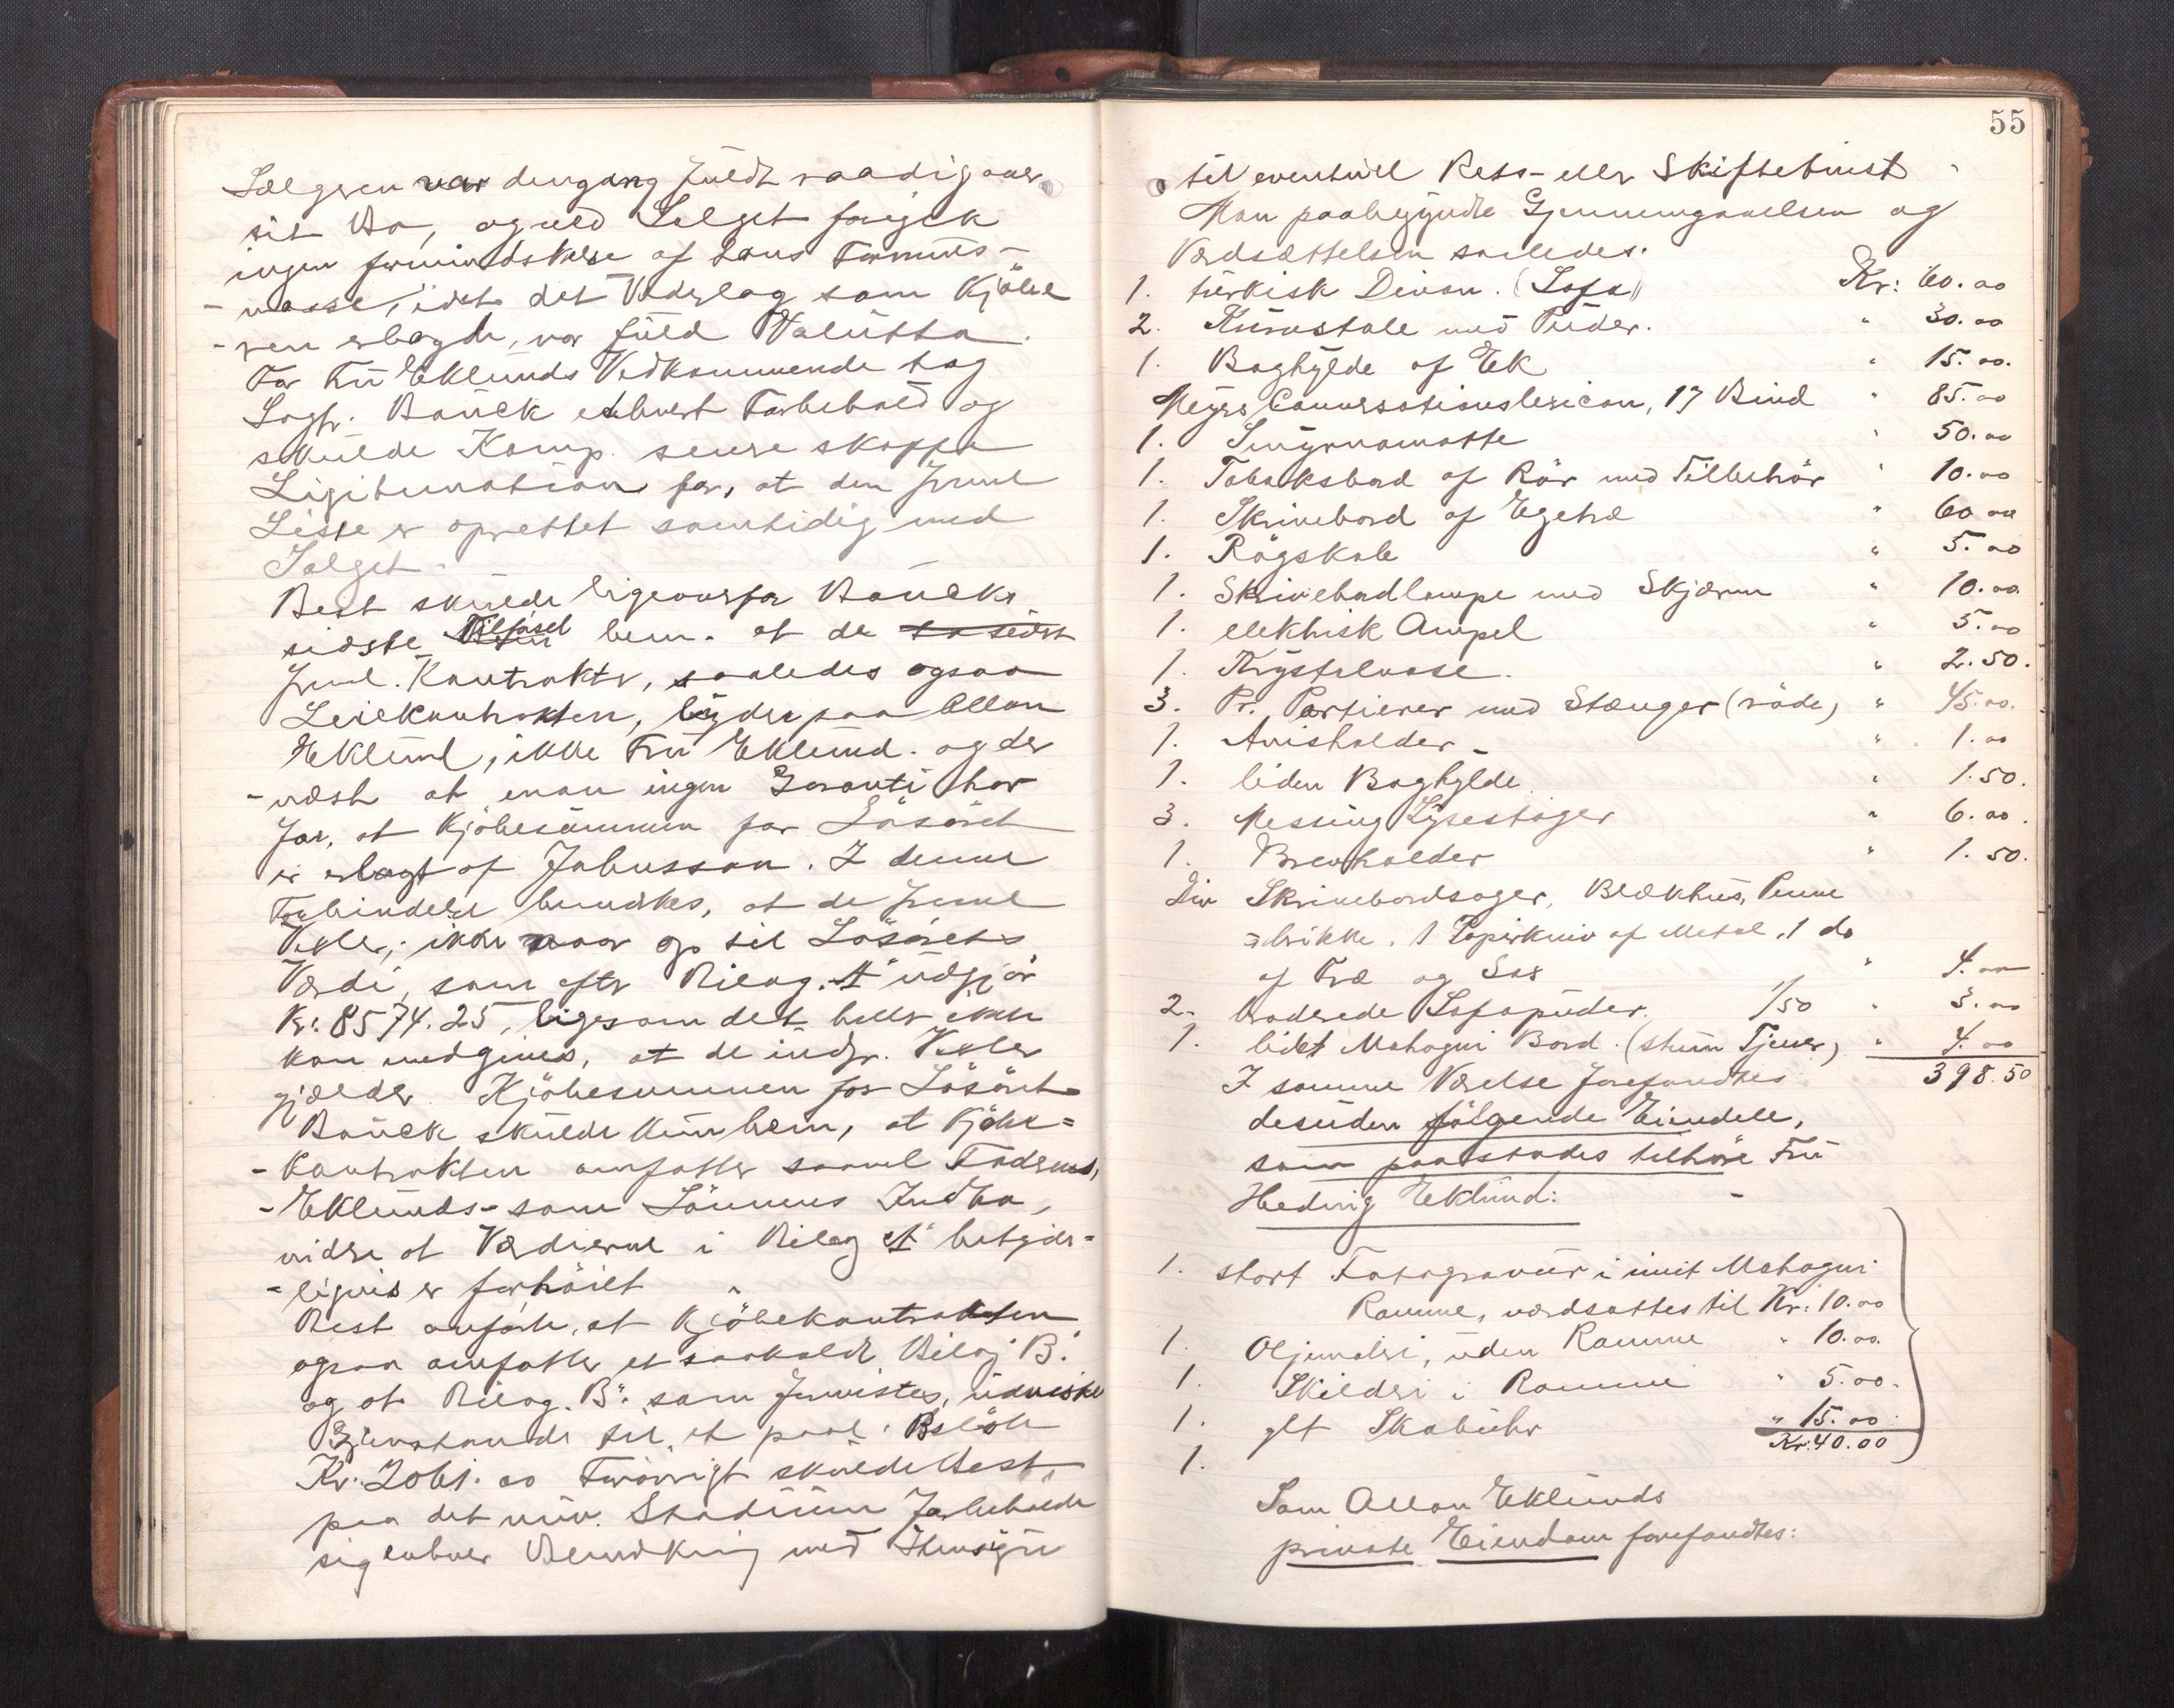 Sælgeren var dengang fuldt raadig over
sit Bo, og ved Salget foregik
ingen formindskelse af hans Formues-
-masse, idet det Vederlag som Kjöbe
-ren erlagde, var fuld Valutta.
For Fru Eklunds Vedkommende tog
Sagf. Bauck ethvert Forbehold og
skulde Komp. senere skaffe
Ligitimation for, at den freml
Liste er oprettet samtidig med
Salget.
Best skulde ligeoverfor Baucks
sidste Tilförsel bem. at de to sidst
freml. Kontrakter, saaledes ogsaa
Leiekontrakten, lyder paa Allan
Eklund, ikke Fru Eklund. og der
-næst at man ingen Garanti har
for, at Kjöbesummen for Lösöret
er erlagt af Johnsson. I denne
Forbindelse bemærkes, at de freml
Vexler, ikke naar op til Lösörets
Værdi, som efter Bilag. A udgjör
Kr: 8574.25, ligesom det heller ikke
kan medgives, at de indfr. Vexler
gjælder Kjöbesummen for Lösöret
Bauck skulde kun bem, at Kjöbe=
-kontrakten omfatter saavel Faderens,
-Eklunds- som Sönnens Indbo,
videre at Værdierne i Bilag A betyde=
-ligvis er forhöiet
Best anförte, at Kjöbekontrakten
ogsaa omfatter et saakaldt Bilag B.
og at Bilag. B. som fremvistes, udviske
Gjenstande til et paal. Belöb
Kr: 2061.00 Forövrigt skulde Best,
paa det nuv. Stadium forbeholde
sig enhver Bemærkning med Hensyn
55
til eventuel Rets- eller Skiftetvist
Man paabegyndte Gjennemgaaelsen og
Værdsættelsen saaledes.
1. türkisk Divan. (Sofa) Kr: 60.00
2. Kurvstole med Puder. " 30.00
1. Boghylde af Ek " 15.00.
Meyrs Conversationslexicon, 17 Bind " 85.00
1. Smyrnamatte " 50.00
1. Tobaksbord af Rör med Tilbehör " 10.00
1. Skrivebord af Egetræ " 60.00
1. Rögskab " 5.00
1. Skrivebordlampe med Skjærm " 10.00
1. elektrisk Ampel " 5.00
1. Krystalvase. " 2.50.
3. Pr. Portierer med Stænger (röde) " 45.00.
1. Avisholder " 1.00
1. liden Boghylde. " 1.50.
3. Messing Lysestager " 6.00.
1. Brevholder " 1.50.
Div Skrivebordsager, Blækhus, Penne
=brikke, 1 Papirkniv af Metal, 1 do
af Træ og Sax " 4.00
2. broderede Sofapuder. 1/50 " 3.00
1. lidet Mahogni Bord. (stum Tjener) " 4.00
I samme Værelse forefandtes 398.50
desuden fölgende Eiendele,
som paastodes tilhöre Fru
Hedvig Eklund:
1. stort Fotogravur i imit Mahogni
Ramme, værdsattes til Kr: 10.00
1. Oljemaleri, uden Ramme " 10.00.
1. Skilderi i Ramme " 5.00.
1. glt Skabuhr " 15.00.
1. Kr: 40.00
Som Allan Eklunds
private Eiendom forefandtes: